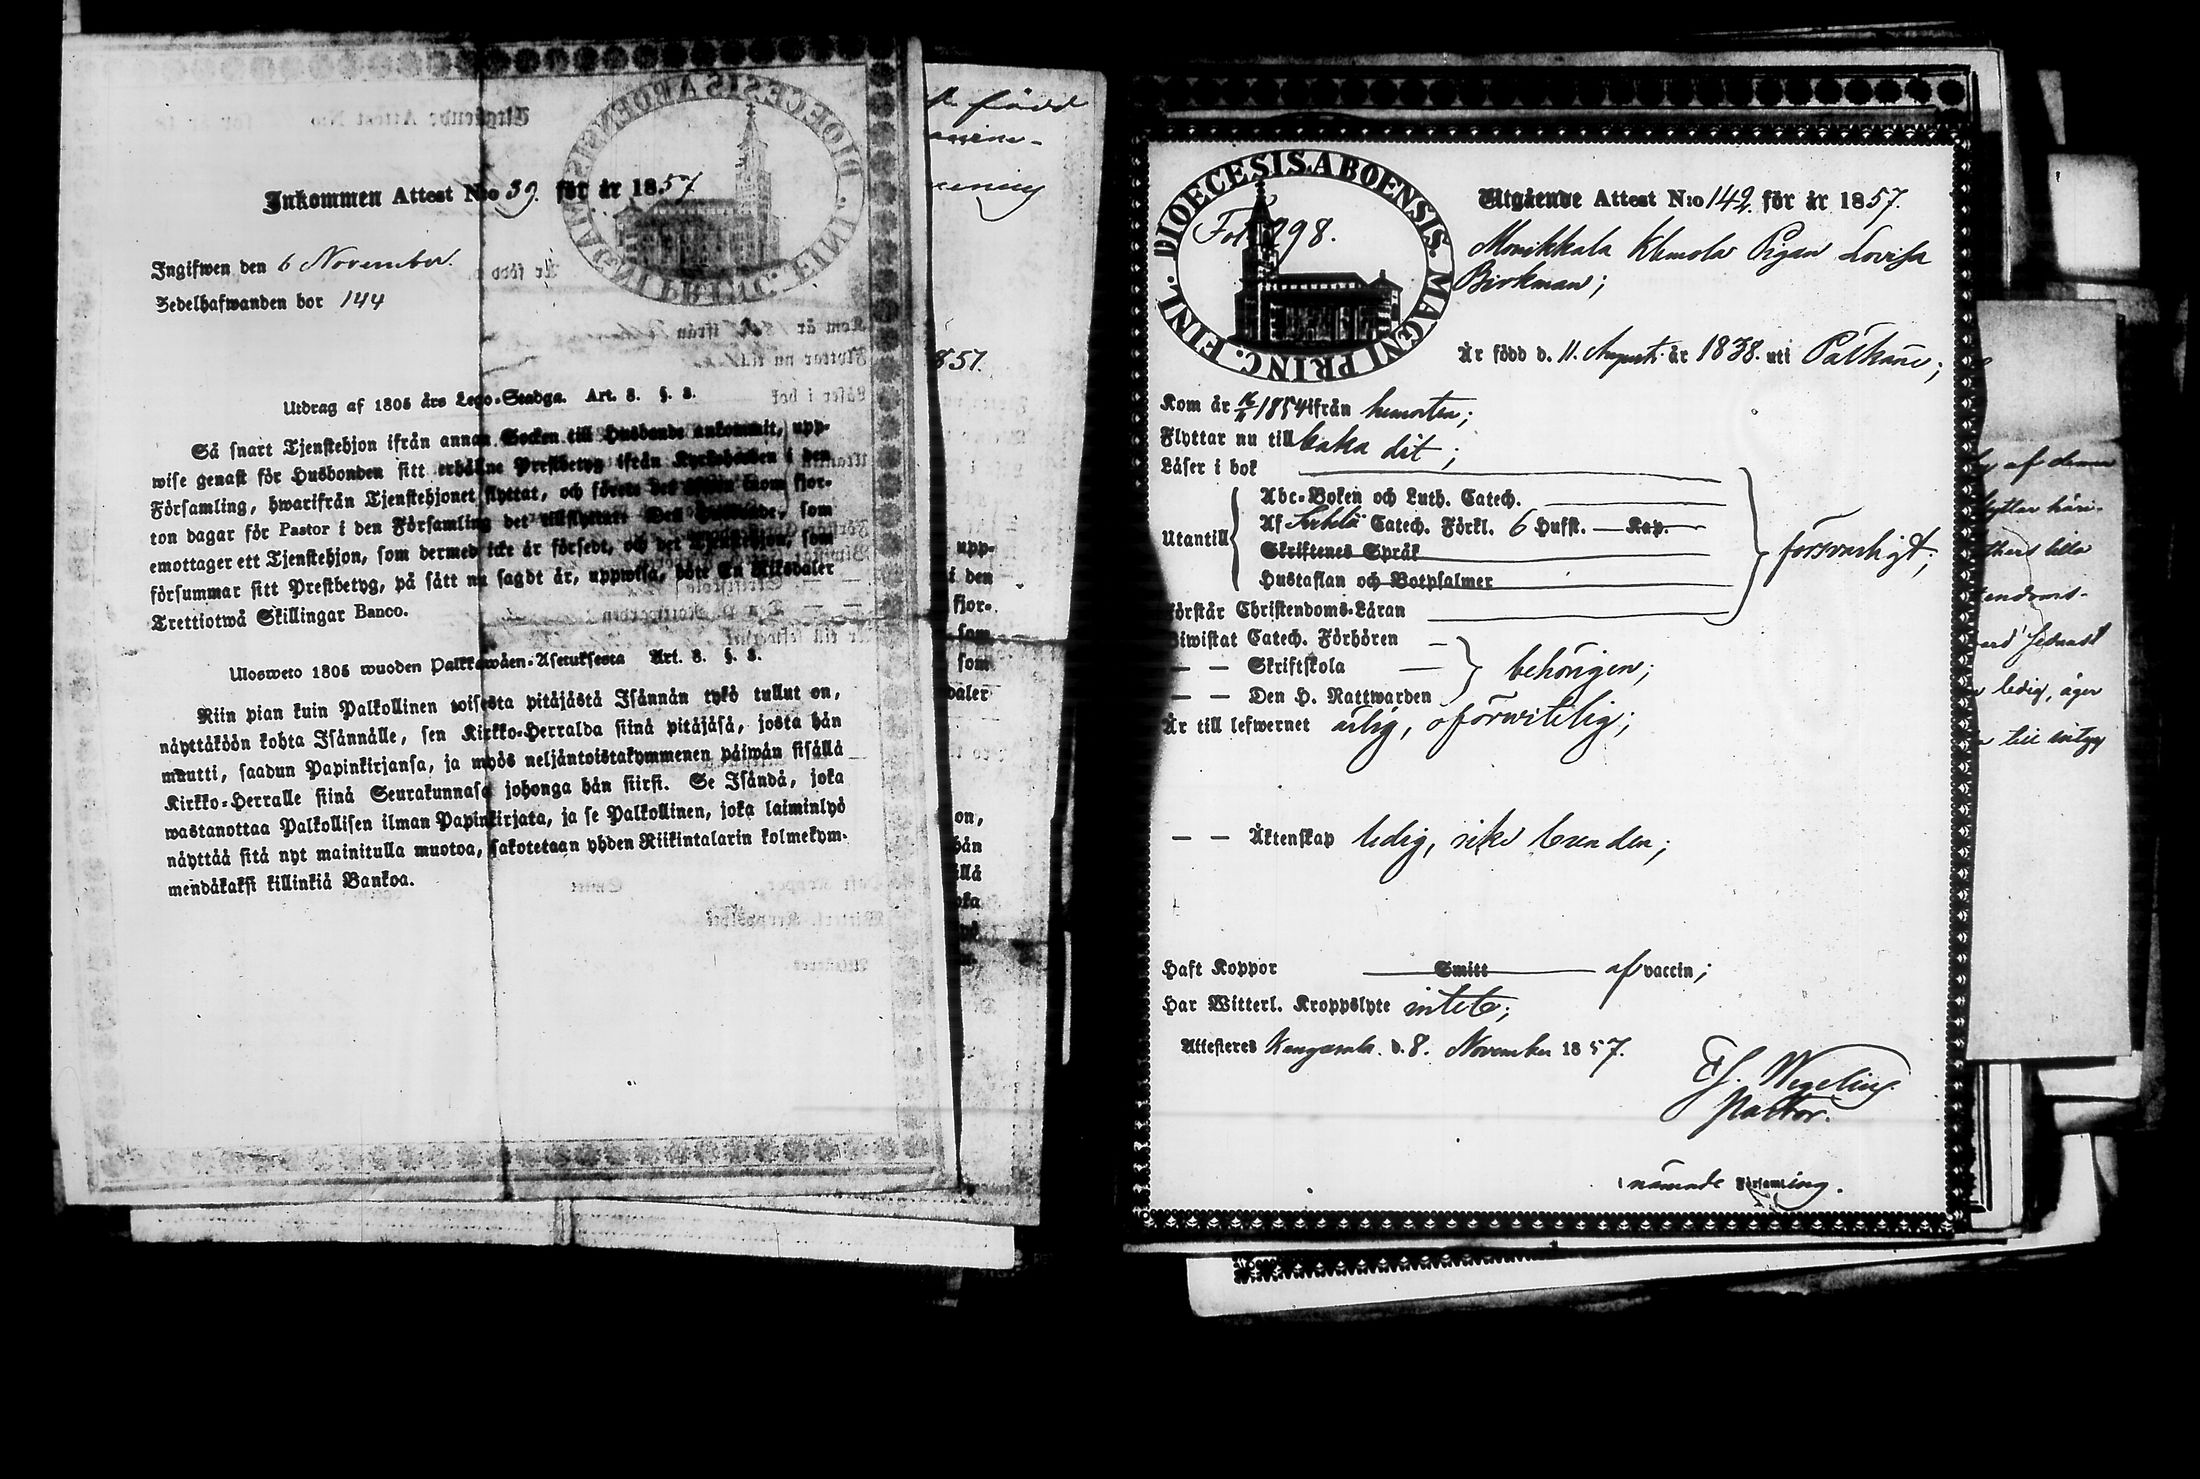 Inkommen Attest N:o 39. för år 1857
Ingifwen den 6 November.
Zedelhafwanden bor 144
Utdrag af 1805 års Lego-Stadga. Art. 8. §. 8.
Så snart Tjenstehjon ifrån annan Socken till Husbonde ankommit, upp-
wise genast för Husbonden sitt erhållne Prestbetyg ifrån Kyrkoherden i den
Församling, hwarifrån Tjenstehjonet flyttat, och förete det inom fjor-
ton dagar för Pastor i den Församling det tillflyttat. Den Husbonde, som
emottager ett Tjenstehjon, som dermed icke är försedt, och det Tjenstehjon, som
försummar sitt Prestbetyg, på sätt nu sagdt är, uppwisa, böte En Riksdaler
Trettiotwå Skillingar Banco.
Ulosweto 1805 wuoden Palkkawäen-Asetuksesta Art. 8. §. 8.
Niin pian kuin Palkollinen toisesta pitäjästä Isännän tykö tullut on,
näyttäköön kohta Isännälle, sen Kirkko-Herralda siinä pitäjäsä, josta hän
muutti, saadun Papinkirjansa, ja myös neljäntoistakymmenen päiwän sisällä
Kirkko-Herralle siinä Seurakunnasa johonga hän siirsi. Se Isändä, joka
wastanottaa Palkollisen ilman Papinkirjata, ja se Palkollinen, joka laiminlyö
näyttää sitä nyt mainitulla muotoa, sakotetaan yhden Riikintalarin kolmekym-
mendäkaksi killinkiä Bankoa.
född
857.
upp-
i den
fjor-
som
som
daler
on,
hän
ällä
oka
DIOECESIS ABOENSIS. MAGNI PRINC. FINL.
Fol. 298.
Utgående Attest N:o 142. för år 1857.
Pigan Lovisa
Birkman;
Är född d. 11. Augusti år 1838. uti Pälkäne;
Kom år 1854 ifrån hemorten;
Flyttar nu till baka dit;
Läser i bok
Utantill
Abc-Boken och Luth. Catech.
Af Catech. Förkl. 6 Hufst. — Kap.
Skriftenes Språk
Hustaflan och Botpsalmer
försvarligt;
Förstår Christendoms-Läran
Biwistat Catech. Förhören —
— — Skriftskola —
— — Den H. Nattwarden
behörigen;
Är till lefwernet ärlig, oförvitelig;
— — Äktenskap ledig, icke bunden;
Haft Koppor Smitt af vaccin;
Har Witterl. Kroppslyte intet;
Attesteres Kangasala. d. 8. November 1857.
Wegelius.
Pastor.
i nämnde Församling.
af denna
ledig, äger